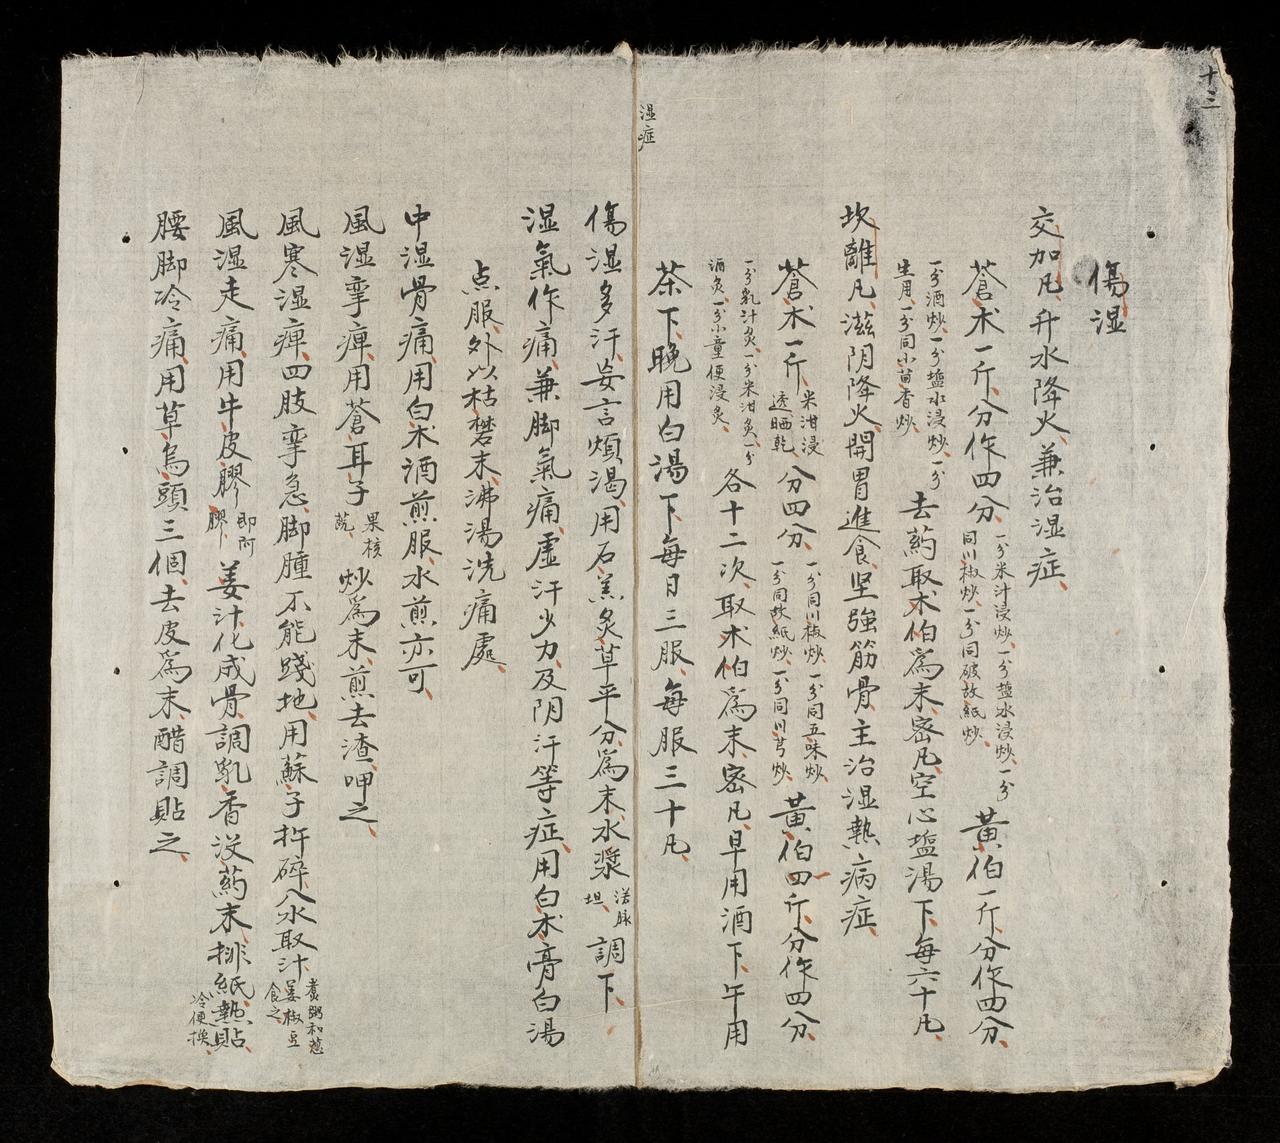 十三
湿症
傷湿
交加凡、升水降火、兼治湿症、
蒼术一斤、分作四分、一分米汁浸炒、一分盐水浸炒、一分同川椒炒、一分同破故紙炒、黄伯一斤、分作四分、
一分酒炒、一分盐水浸炒、一分生用、一分同小茴香炒、去药取术伯為末、密凡、空心盐湯下、每六十凡、
坎離凡、滋阴降火、開胃進食、坚強筋骨、主治湿熱病症、
蒼术一斤、米泔浸透晒乾、分四分、一分同川椒炒、一分同五味炒、一分同故紙炒、一分同川芎炒、黄伯四斤、分作四分、
一分乳汁炙、一分米泔炙、一分酒炙、一分小童便浸炙、各十二次、取术伯為末、密凡、早用酒下、午用
茶下、晚用白湯下、每日三服、每服三十凡、
傷湿多汗、妄言煩渴、用石羔炙草平分為末、水漿調下、
湿氣作痛、兼脚氣痛、虚汗少力、及阴汗等症、用白术膏白湯
点服、外以枯礬末、沸湯洗痛處、
中湿骨痛、用白术酒煎服、水煎亦可、
風湿挛痺、用蒼耳子果核蔬、炒為末、煎去渣呷之、
風寒湿痺、四肢挛急、脚腫不能踐地、用蘇子杵碎、入水取汁、煮粥和葱姜椒豆食之、
風湿走痛、用牛皮膠即阿膠、姜汁化成骨、調乳香没药末、排紙熱貼、冷便换、
腰脚冷痛、用草烏頭三個、去皮為末、醋調貼之、